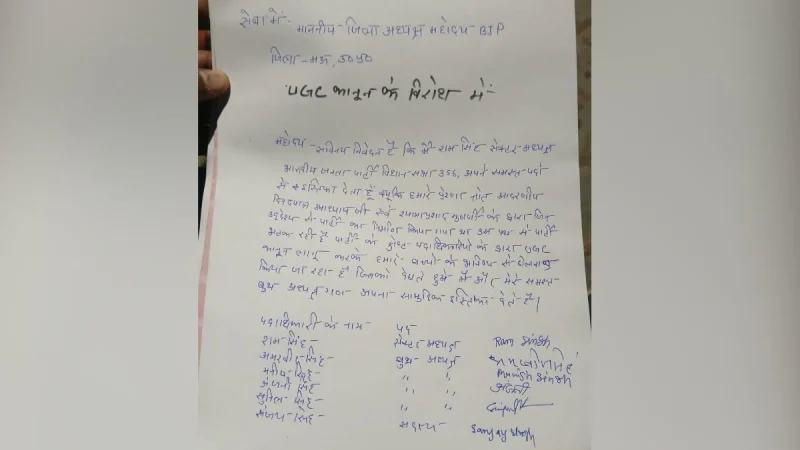 सेवा में:
माननीय - जिला अध्यक्ष महोदय - BJP
जिला - मऊ, उ०प्र०
UGC कानून के विरोध में:
महोदय - सविनय निवेदन है कि मैं राम सिंह सेक्टर अध्यक्ष
भारतीय जनता पार्टी विधान सभा 356, अपने समस्त पदों
से इस्तिफा देता हूँ क्यूकि हमारे प्रेरणा स्रोत आदरणीय
उपाध्याय जी एवं श्यामाप्रसाद मुखर्जी के द्वारा जिस
उद्देश्य से पार्टी का निर्माण किया गया था उस पथ से पार्टी
भटक रही है पार्टी के पदाधिकारियों के द्वारा UGC
कानून लागू करके हमारे बच्चों के भविष्य से खेलवाड़
किया जा रहा है जिसको देखते हुये मैं और मेरे समस्त
बुथ अध्यक्ष गण अपना सामुहिक इस्तिफा देते हैं।
पदाधिकारी के नाम - पद
राम सिंह - सेक्टर अध्यक्ष Ram Singh
सिंह - बुथ अध्यक्ष
मनीष सिंह - " " Manish Singh
अंजनी सिंह अंजनी
सुनिल सिंह - " "
संजय सिंह - सदस्य - Sanjay Singh